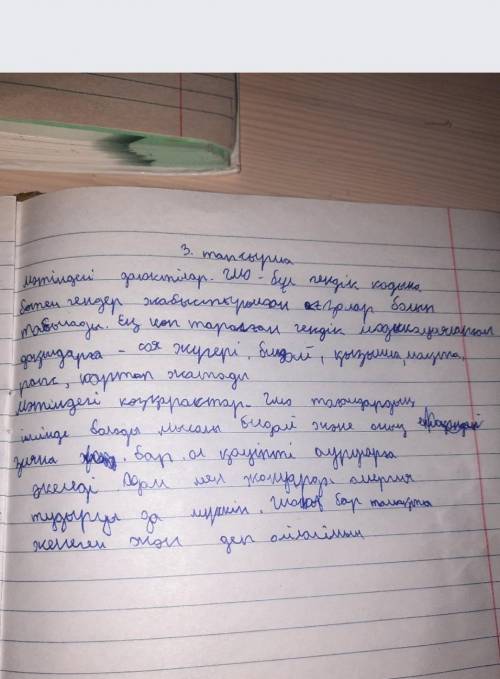 3. тапсырма
мәтіндегі дәйектілар. гмо - бұл гендік кодына
бөтен гендер жабыстырылған ағзалар болып
табылады. Ең көп таралған гендік модификацияланған
дақылдарға - соя жүгері, бидай, қызылша, мақта,
рапс, картоп жатады
мәтіндегі көзқарастар. гмо тағамдардың
ішінде болады мысалы бидай және оның
зияны бар. ол қауіпті ауруларға
әкеледі. Адам мен жануарлар аллергия
туздыруы да мүмкін. гмо бар тамақты
жемеген жөн деп ойлаймын